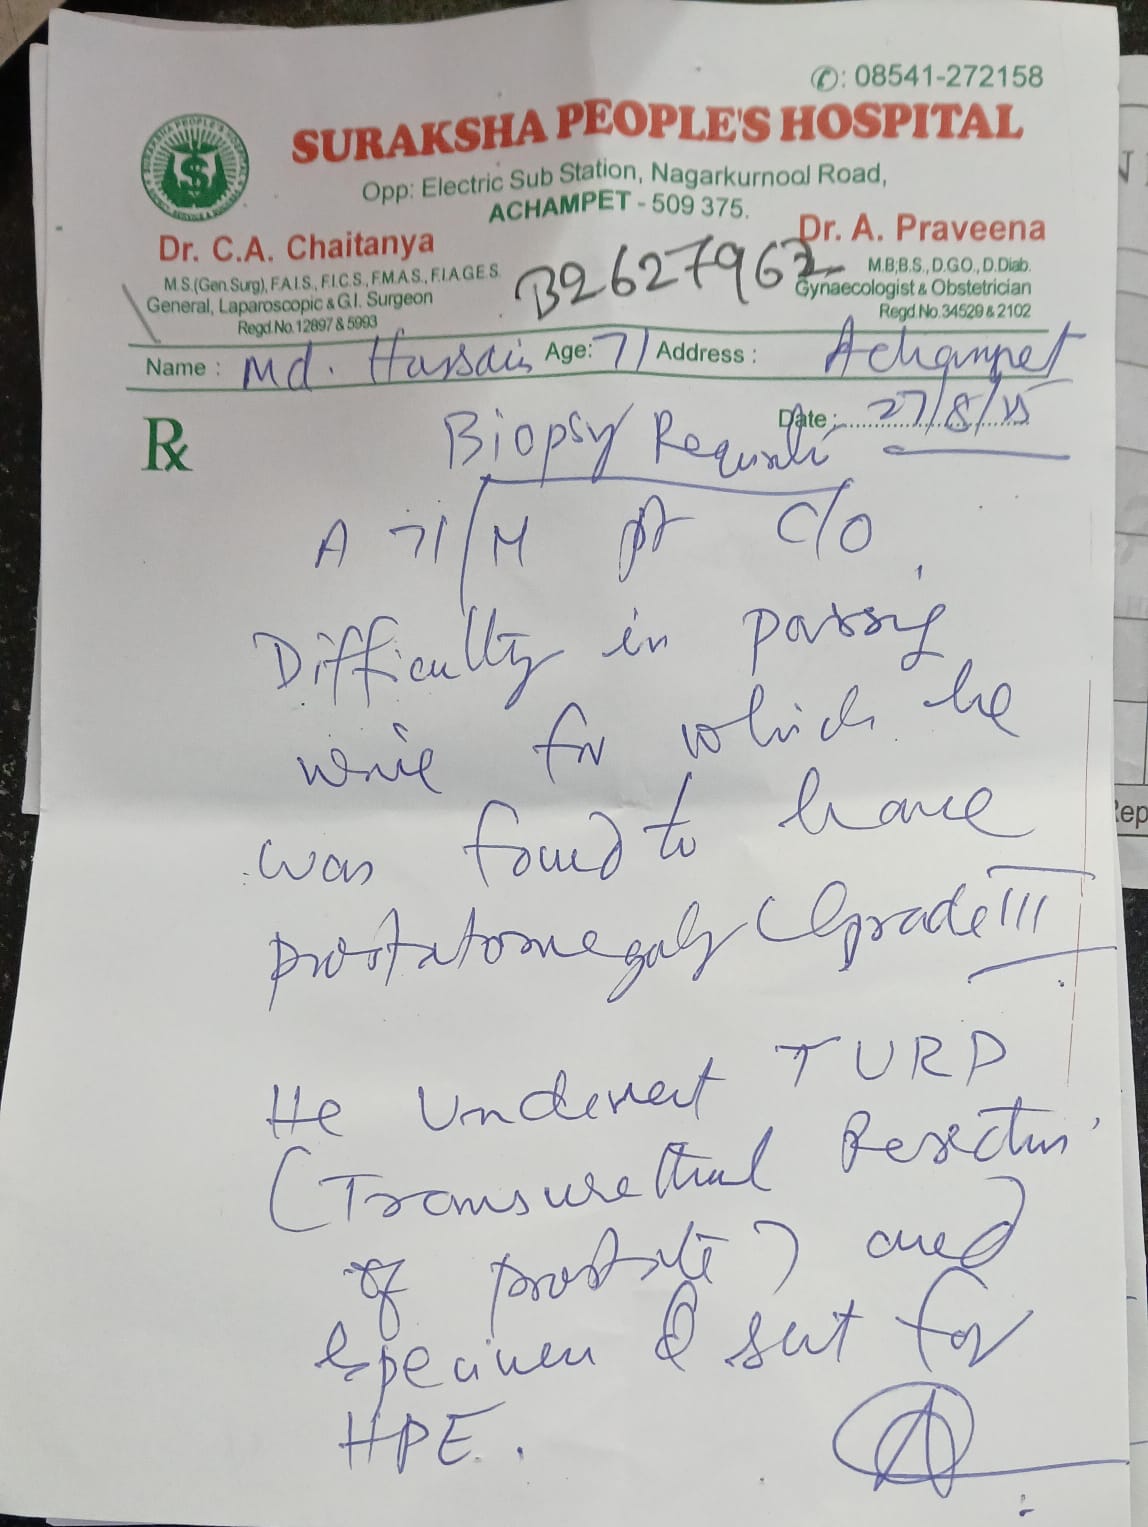 ✆: 08541-272158
SURAKSHA PEOPLE'S HOSPITAL
Opp: Electric Sub Station, Nagarkurnool Road,
ACHAMPET - 509 375.
Dr. C.A. Chaitanya
M.S.(Gen.Surg), F.A.I.S., F.I.C.S., F.M.A.S., F.I.A.G.E.S.
General, Laparoscopic & G.I. Surgeon
Regd.No.12897 & 5993
B2627962
Dr. A. Praveena
M.B,B.S., D.GO., D.Diab.
Gynaecologist & Obstetrician
Regd.No.34529 & 2102
Name : Md. Hussain Age: 71 Address : Achampet
Date : 27/8/25
Rx
Biopsy
A 71/M pt C/O
Difficulty in passing
urine for which he
was found to have
prostatomegaly (Grade III
He underwent TURP
(Transurethral Resection
of prostate) and
specimen sent for
HPE.